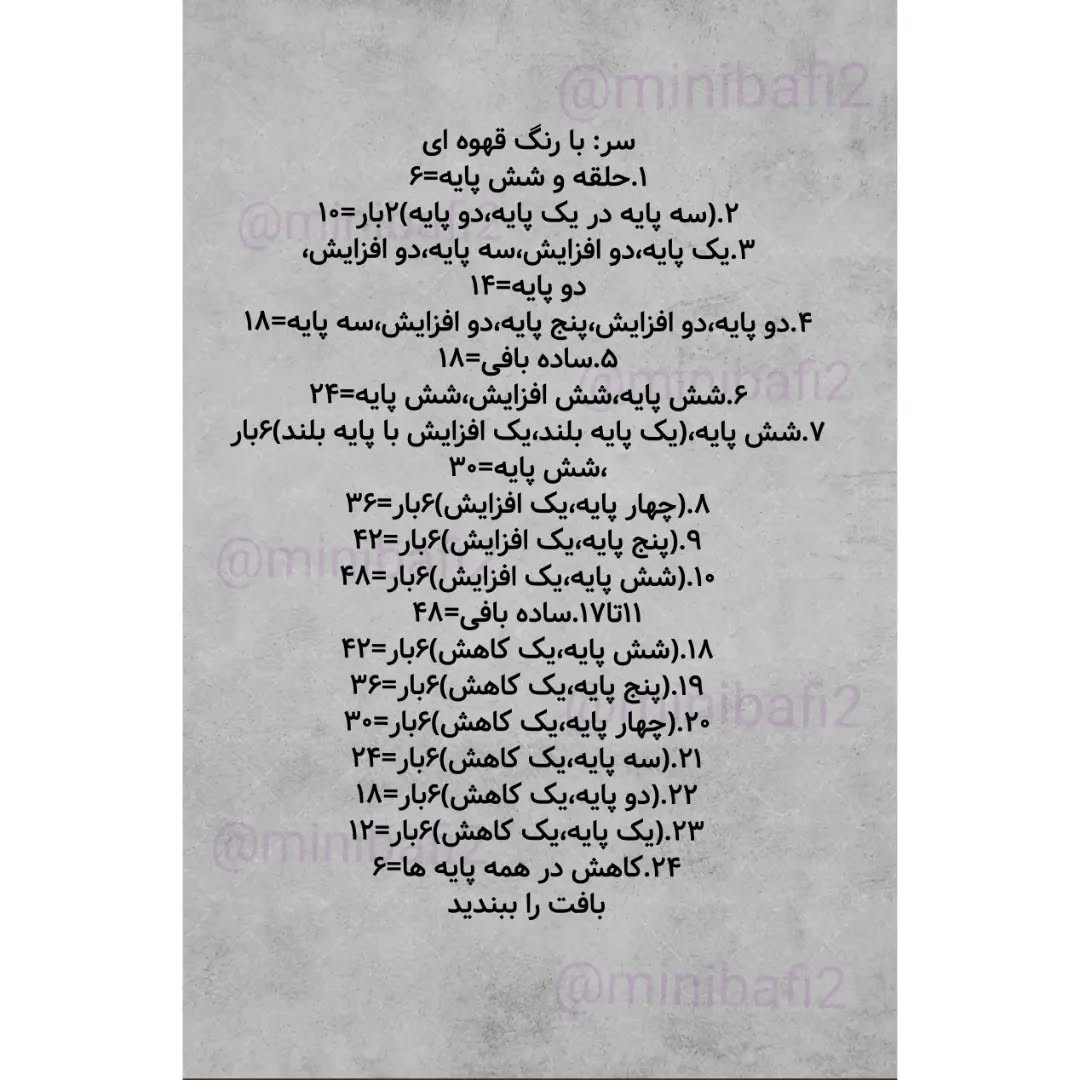 @minibafi2
سر: با رنگ قهوه ای
۱.حلقه و شش پایه=۶
۲.(سه پایه در یک پایه،دو پایه)۲بار=۱۰
@minibafi2
۳.یک پایه،دو افزایش،سه پایه،دو افزایش،
دو پایه=۱۴
۴.دو پایه،دو افزایش،پنج پایه،دو افزایش،سه پایه=۱۸
۵.ساده بافی=۱۸
@minibafi2
۶.شش پایه،شش افزایش،شش پایه=۲۴
۷.شش پایه،(یک پایه بلند،یک افزایش با پایه بلند)۶بار
،شش پایه=۳۰
۸.(چهار پایه،یک افزایش)۶بار=۳۶
۹.(پنج پایه،یک افزایش)۶بار=۴۲
@minibafi2
۱۰.(شش پایه،یک افزایش)۶بار=۴۸
۱۱تا۱۷.ساده بافی=۴۸
۱۸.(شش پایه،یک کاهش)۶بار=۴۲
۱۹.(پنج پایه،یک کاهش)۶بار=۳۶
@minibafi2
۲۰.(چهار پایه،یک کاهش)۶بار=۳۰
۲۱.(سه پایه،یک کاهش)۶بار=۲۴
۲۲.(دو پایه،یک کاهش)۶بار=۱۸
۲۳.(یک پایه،یک کاهش)۶بار=۱۲
@minibafi2
۲۴.کاهش در همه پایه ها=۶
بافت را ببندید
@minibafi2